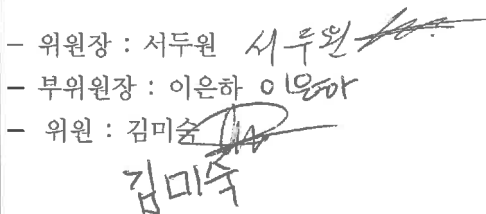 - 위원장 : 서두원 서두원
- 부위원장 : 이은하 이은하
- 위원 : 김미숙
김미숙